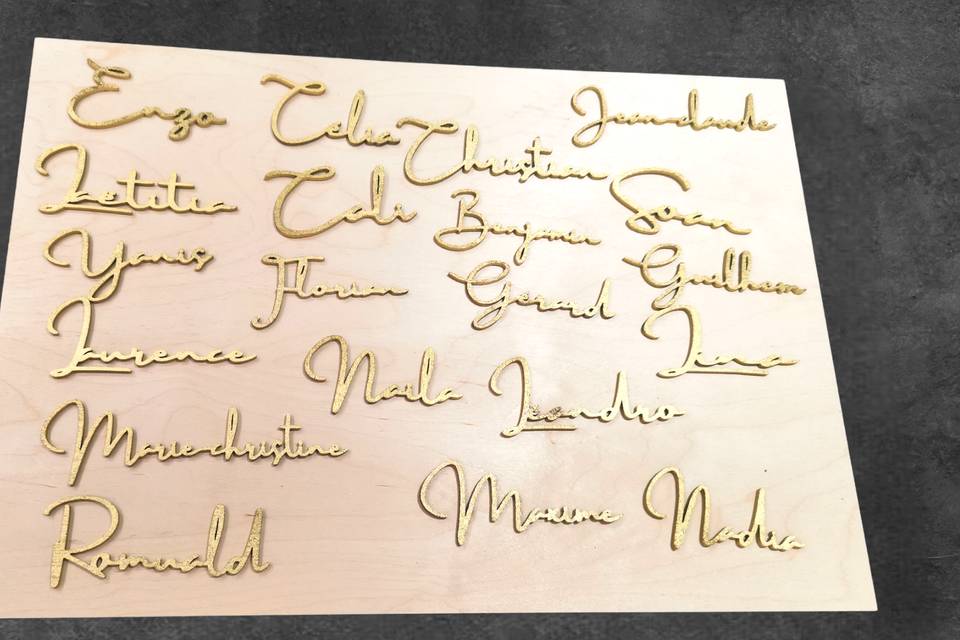 Enzo
Celia
Jean-claude
Christian
Laetitia
Cali
Benjamin
Soan
Yanis
Florian
Gerard
Guilhem
Laurence
Naila
Leandro
Lena
Marie-christine
Maxime
Nadia
Romuald